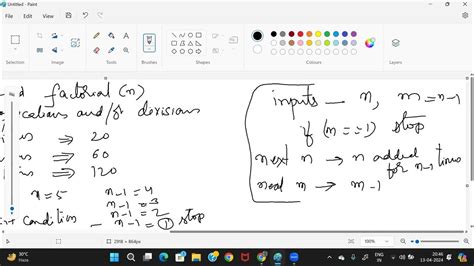 Untitled - Paint
File
Edit
View
Selection
Image
Tools
Brushes
Shapes
Size
Colors
factorial (n)
and/or
⇒ 20
⇒ 60
⇒ 120
n=5
n-1=4
n-1=3
n-1=2
condition - n-1=① stop
inputs — n, m=n-1
if (m==1) stop
next n → n added for n-1 times
next m → m-1
2918 × 864px
30°C
Haze
ENG
IN
20:46
13-04-2024